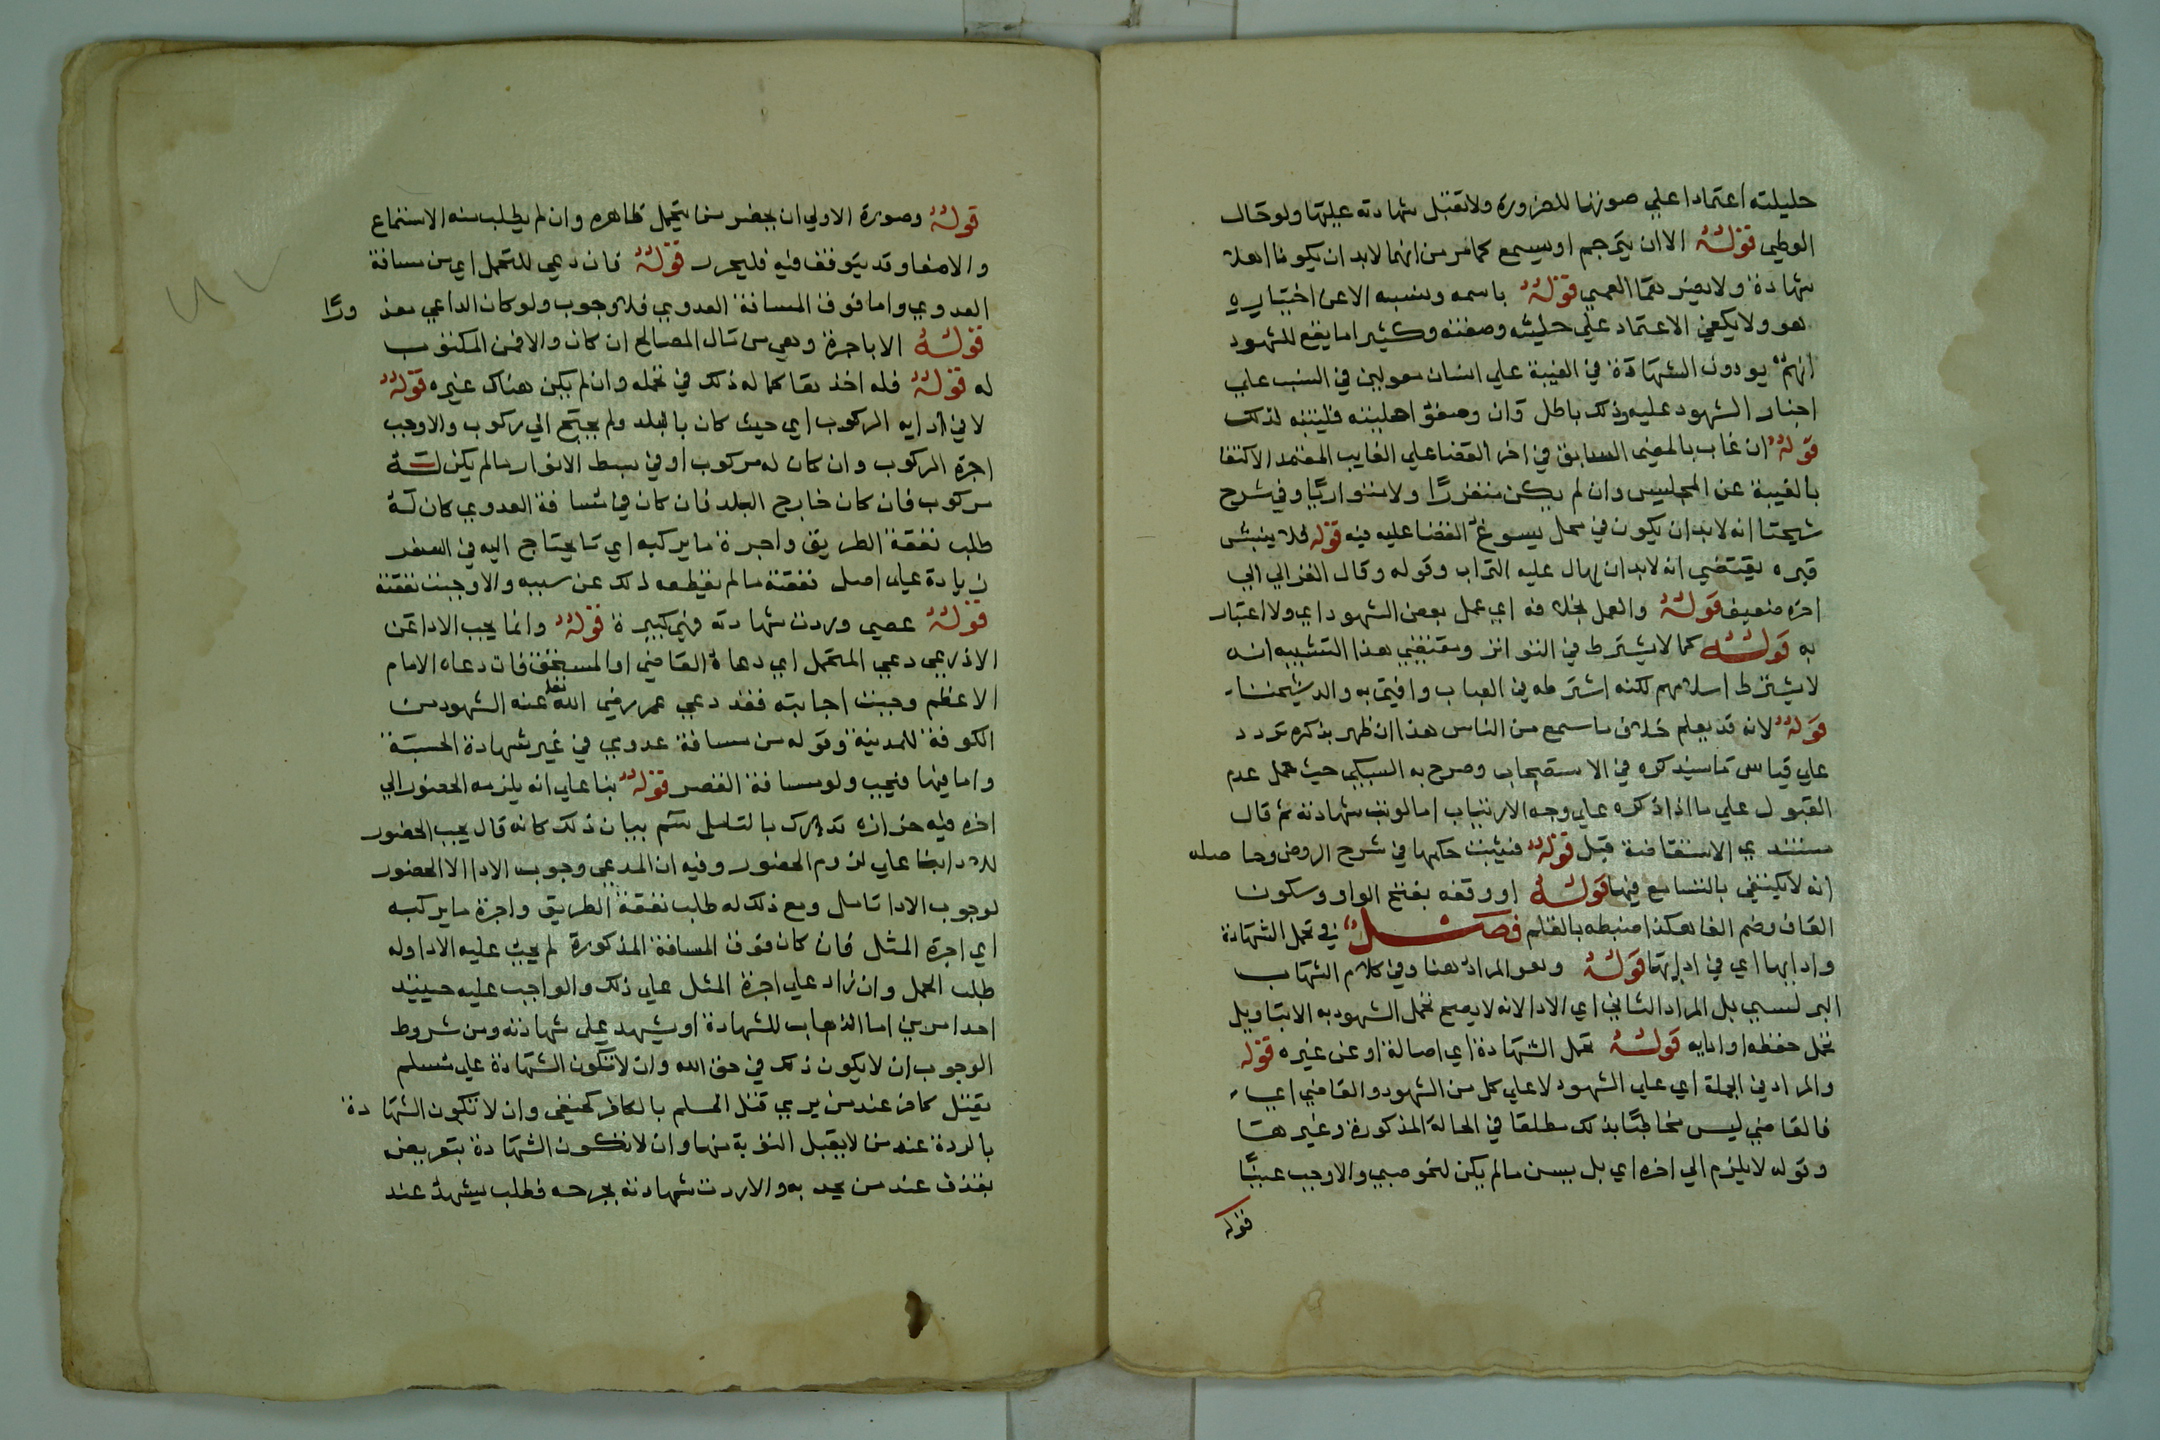 حليلته اعتمادا علي صوتها للضرورة ولا تقبل شهادته عليها ولو حال
الوطي قوله الا ان يترجم او يسمع كما مر من انهما لابد ان يكونا اهلا
شهادة ولا يضر العمي قوله باسمه ونسبه
هو ولا يكفي الاعتماد علي حليته وصفته وكثيرا ما يقع للشهود
انهم يودون الشهادة في الغيبة علي انسان معولين في النسب علي
اخبار الشهود عليه وذلك باطل وان وصفوا حليته فليتنبه لذلك
قوله ان غاب بالمعني السابق في اخر القضا علي الغايب المعتمد الاكتفا
بالغيبة عن المجلس وان لم يكن متعززا ولا متواريا وفي شرح
شيخنا انه لابد ان يكون في محل يسوغ القضا عليه فيه قوله فلا ينبش
قبره يقتضي انه لابد ان يهال عليه التراب وقوله وقال الغزالي الي
اخره ضعيف قوله والعمل بخلافه اي عمل بعض الشهود اي ولا اعتبار
به قوله كما لا يشترط في التواتر ويقتضي هذا التشبيه انه
لا يشترط اسلامهم لكنه اشترطه في العباب وافتي به والد شيخنا
قوله لانه قد يعلم خلاف ما سمع من الناس هذا ان ظهر بذكره تردد
علي قياس ما سيذكره في الاستصحاب وصرح به السبكي حيث حمل عدم
القبول علي ما اذا ذكره علي وجه الارتياب اما لو بت شهادته ثم قال
مستندي الاستفاضة قبل قوله فيثبت حكمها في شرح الروض وحاصله
انه لا يكتفي بالتسامع فيها قوله او وقفه بفتح الواو وسكون
القاف وضم الفا هكذا ضبطه بالقلم فصل في تحمل الشهادة
وادايها اي في ادايها قوله وهو المراد هنا وفي كلام الشهاب
البرلسي بل المراد الثاني اي الادا لانه لا يصح تحمل الشهود به الا بتاويل
تحمل حفظه او ادايه قوله تحمل الشهادة اي اصالة او عن غيره قوله
والمراد في الجملة اي علي الشهود لا علي كل من الشهود والقاضي اي
فالقاضي ليس مخاطبا بذلك مطلقا في الحالة المذكورة وغيرها
وقوله لا يلزم الي اخره اي بل يسن ما لم يكن لنحو صبي والا وجب عينا
قوله
قوله وصورة الاولي ان يحضر من يتحمل ظاهره وان لم يطلب منه الاستماع
والاصغا وقد يتوقف فيه فليحرر قوله فان دعي للتحمل اي من مسافة
العدوي واما فوق المسافة العدوي فلا وجوب ولو كان الداعي معذورا
قوله الا باجرة وهي من مال المصالح ان كان والا فمن المكتوب
له قوله فله اخذها كما له ذلك في تحمله وان لم يكن هناك غيره قوله
لا في ادايه الركوب اي حيث كان بالبلد ولم يحتج الي ركوب والا وجب
اجرة الركوب وان كان له مركوب او في بسط الانوار ما لم يكن له
مركوب فان كان خارج البلد فان كان في مسافة العدوي كان له
طلب نفقة الطريق واجرة ما يركبه اي ما يحتاج اليه في السفر
زيادة علي اصل نفقته ما لم يقطعه ذلك عن سببه والا وجبت نفقته
قوله عصي وردت شهادته فهي كبيرة قوله وانما يجب الادا عن
الاذرعي دعي المتحمل اي دعاه القاضي او المستحق فان دعاه الامام
الاعظم وجبت اجابته فقد دعي عمر رضي الله تعلي عنه الشهود من
الكوفة للمدينة وقوله من مسافة عدوي في غير شهادة الحسبة
واما فيها فيجب ولو مسافة القصر قوله بنا علي انه يلزمه الحضور الي
اخره فيه حزازة تدرك بالتامل ثم بيان ذلك كانه قال يجب الحضور
للادا بنا علي لزوم الحضور وفيه ان المدعي وجوب الادا لا الحضور
لوجوب الادا تامل ومع ذلك له طلب نفقة الطريق واجرة ما يركبه
اي اجرة المثل فان كان فوق المسافة المذكورة لم يجب عليه الادا وله
طلب الحمل وان زاد علي اجرة المثل علي ذلك والواجب عليه حينيذ
احد امرين اما الذهاب للشهادة او يشهد علي شهادته ومن شروط
الوجوب ان لا يكون ذلك في حق الله وان لا تكون الشهادة علي مسلم
بقتل كافر عند من يري قتل المسلم بالكافر كحنفي وان لا تكون الشهادة
بالردة عند من لا يقبل التوبة منها وان لا تكون الشهادة بتعريض
بقذف عند من يحد به والا ردت شهادته بجرحه فطلب ليشهد عند